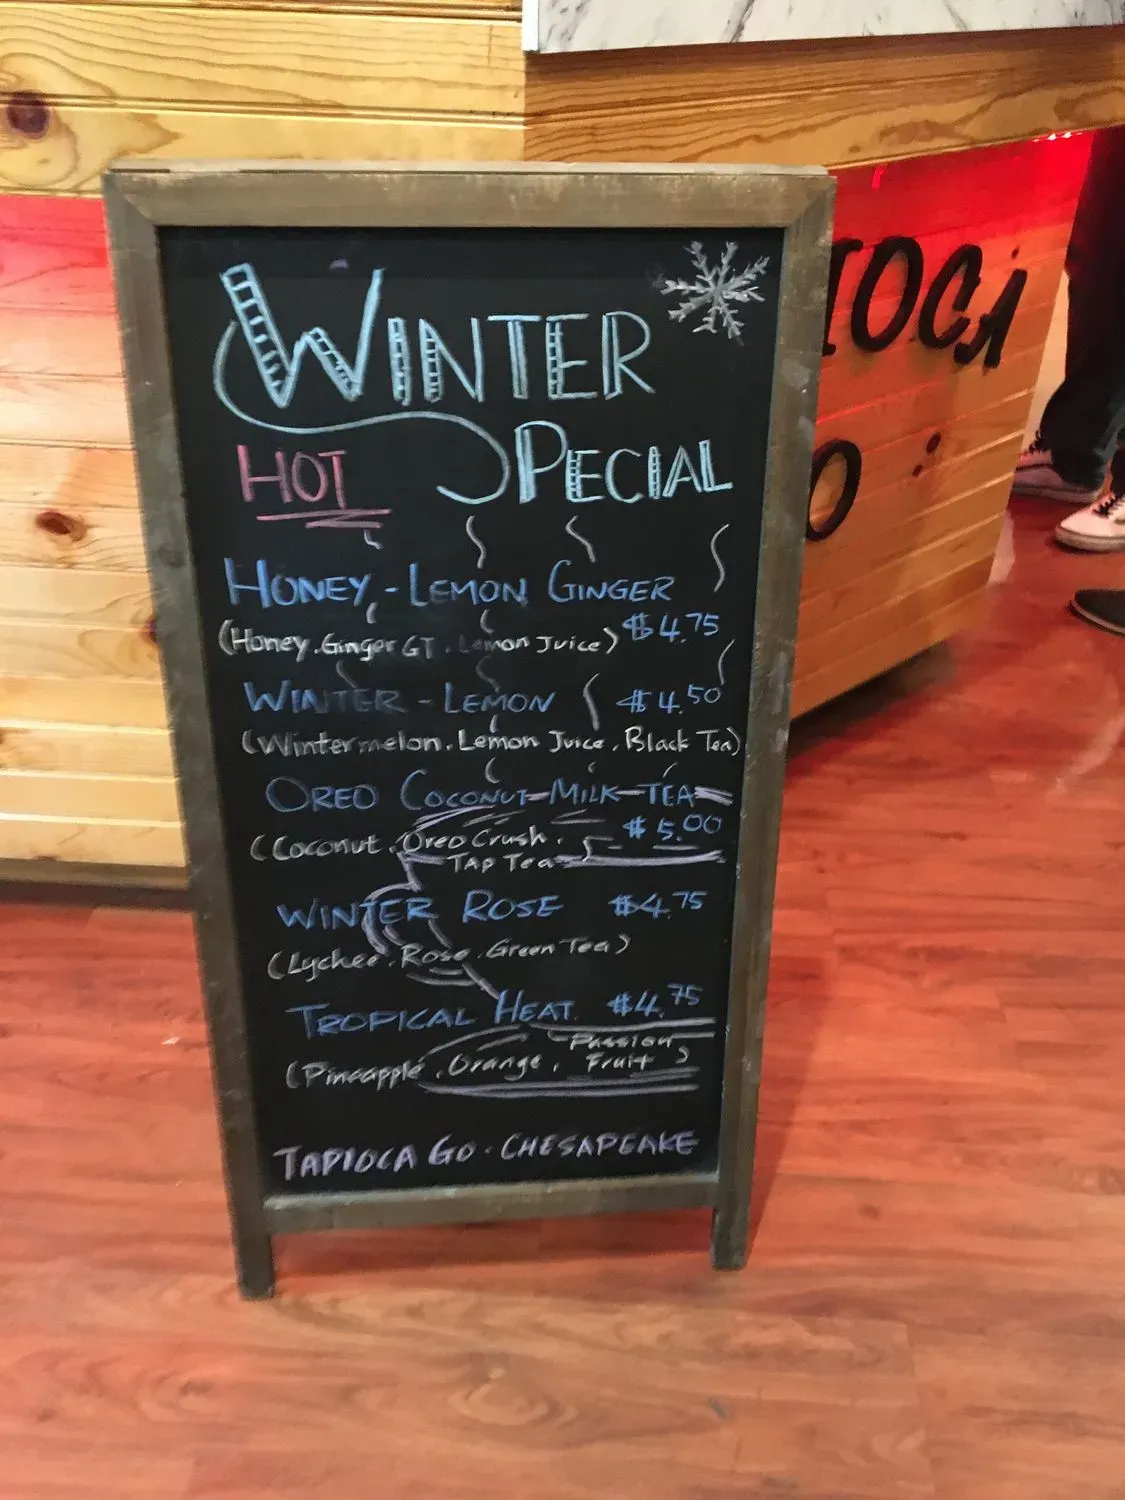 WINTER
HOT SPECIAL
HONEY - LEMON GINGER
$4.75
(Honey. Ginger GT. Lemon Juice)
WINTER - LEMON $4.50
(Wintermelon. Lemon Juice. Black Tea)
OREO COCONUT MILK TEA
$5.00
(Coconut. Oreo Crush.
TAP Tea)
WINTER ROSE $4.75
(Lychee. Rose. Green Tea)
TROPICAL HEAT. $4.75
(Pineapple. Orange. Passion
Fruit)
TAPIOCA GO. CHESAPEAKE
IOCA
O